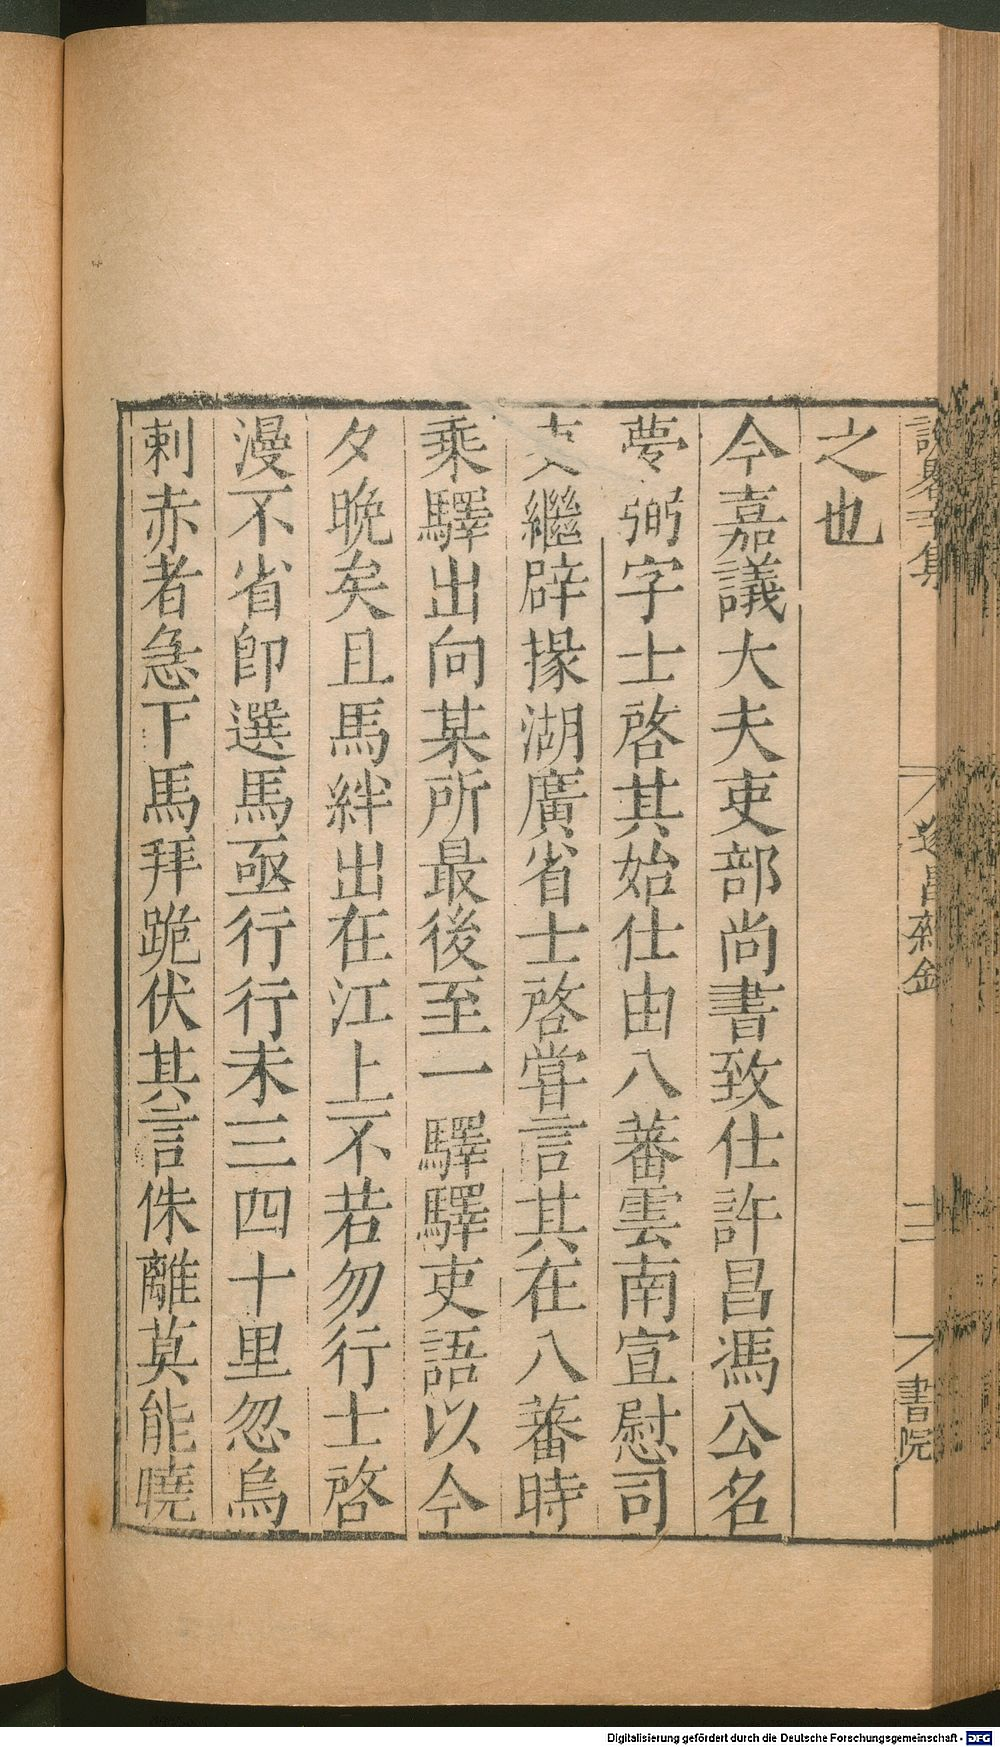 之也
今嘉議大夫吏部尚書致仕許昌馮公名
夢弼字士啓其始仕由八蕃雲南宣慰司
吏繼辟掾湖廣省士啓嘗言其在八蕃時
乘驛出向某所最後至一驛驛吏語以今
夕晚矣且馬絆出在江上不若勿行士啓
漫不省卽選馬亟行行未三四十里忽烏
剌赤者急下馬拜跪伏其言侏離莫能曉
三
書院
Digitalisierung gefördert durch die Deutsche Forschungsgemeinschaft - DFG